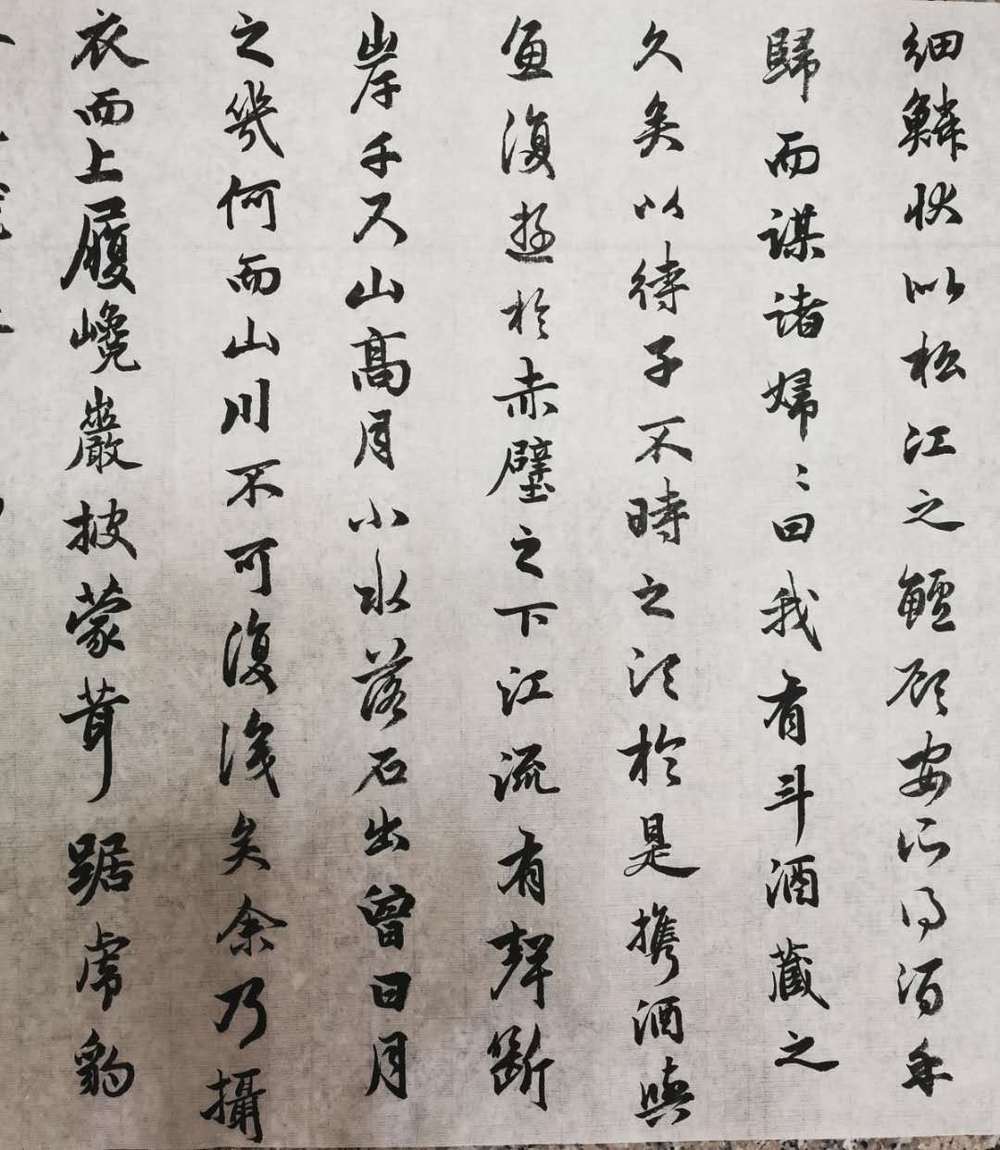 細鱗狀似松江之鱸顧安所得酒乎
歸而謀諸婦〻曰我有斗酒藏之
久矣以待子不時之須於是攜酒與
魚復遊於赤壁之下江流有聲斷
岸千尺山高月小水落石出曾日月
之幾何而山川不可復識矣余乃攝
衣而上履巉巖披蒙茸踞虎豹